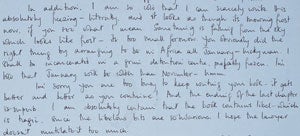 In addition, I am so idle that I can scarcely write this
absolutely freezing - literally, and it looks as though its snowing frost
now, if you see what I mean. Some thing is falling from the sky
which looks like frost - is too small for snow. You obviously did the
right thing by arranging to be in Africa all January -
shall be incarcerated in a grim detention centre, probably freezing. I'm
told that January will be than November - hmm.
I'm sorry you are too busy to keep writing your book. it gets
better and better as you continue. And the ending of the last chapter
is superb. I am absolutely certain that the book contains libel - which
is tragic, since the libelous bits are so hilarious. I hope the lawyer
doesnt mutilate it too much.